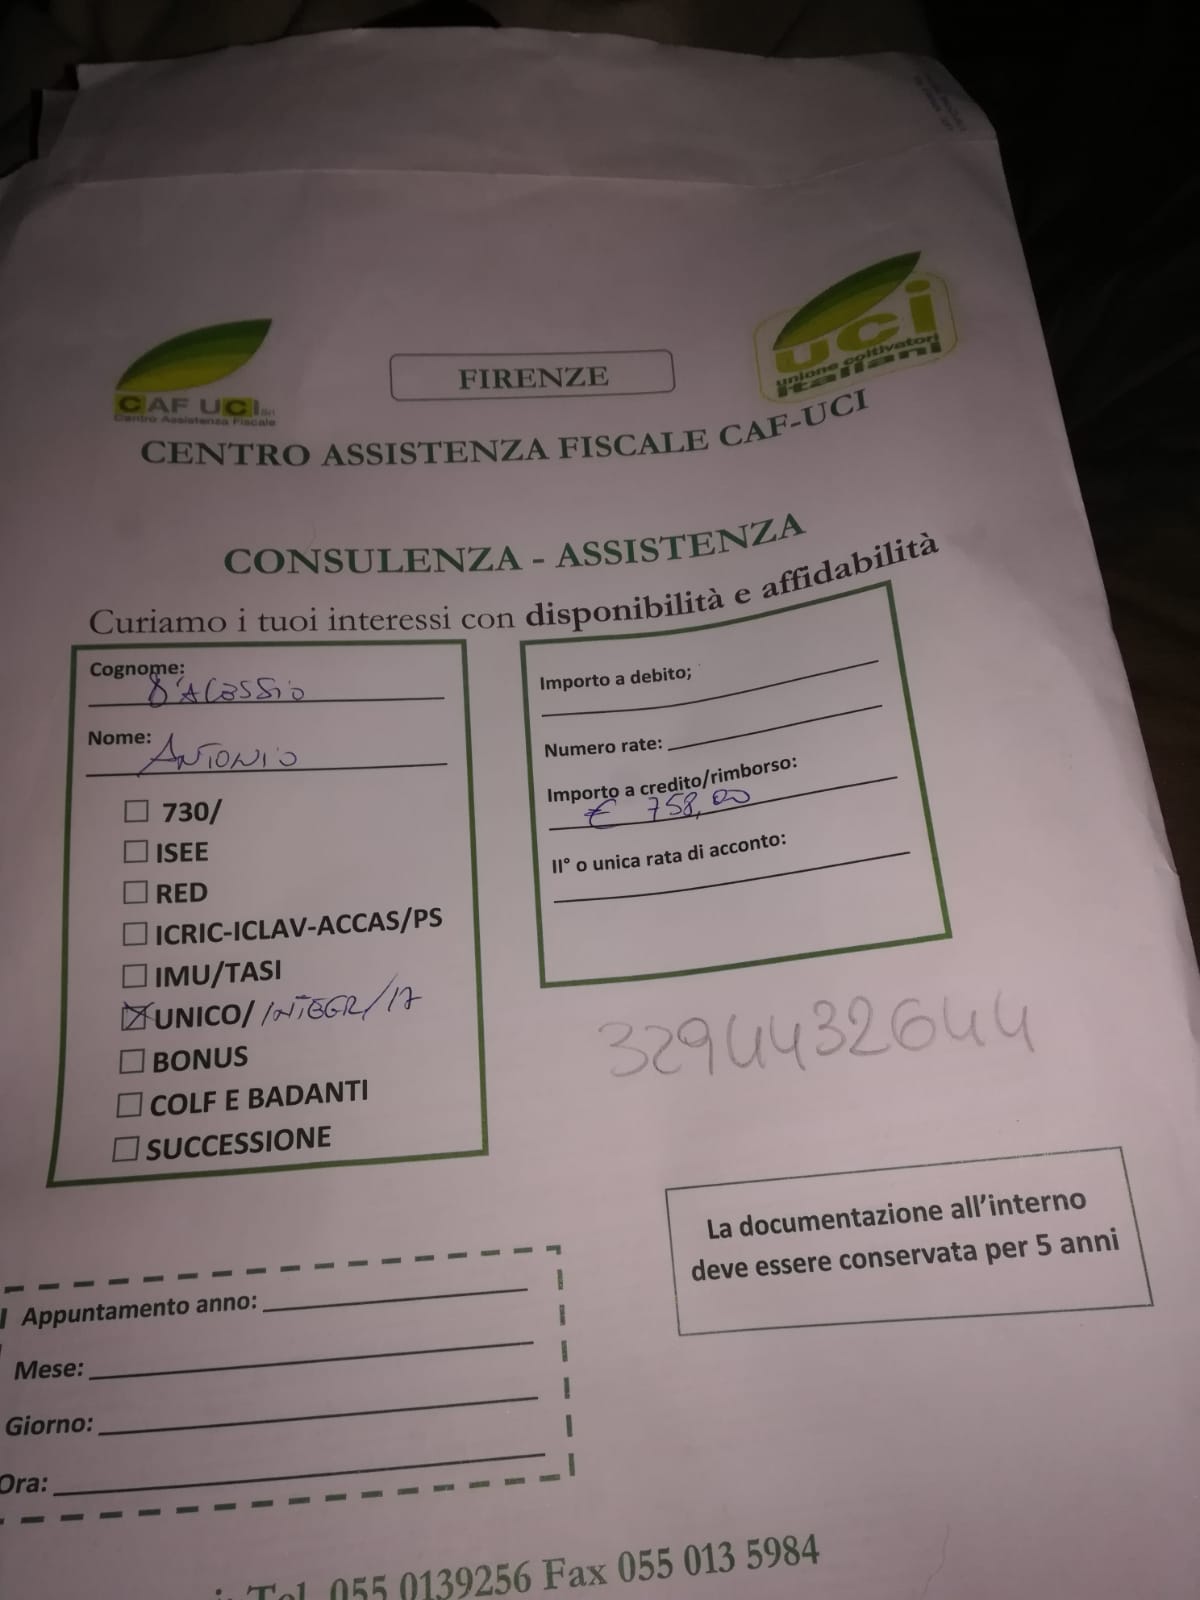 CAF UCI srl
Centro Assistenza Fiscale
FIRENZE
uci
unione coltivatori
italiani
CENTRO ASSISTENZA FISCALE CAF-UCI
CONSULENZA - ASSISTENZA
Curiamo i tuoi interessi con disponibilità e affidabilità
Cognome:
D'ALESSIO
Nome:
ANTONIO
730/
ISEE
RED
ICRIC-ICLAV-ACCAS/PS
IMU/TASI
UNICO/INTEGR/17
BONUS
COLF E BADANTI
SUCCESSIONE
Importo a debito;
Numero rate:
Importo a credito/rimborso:
€ 758,00
II° o unica rata di acconto:
3294432644
La documentazione all'interno
deve essere conservata per 5 anni
Appuntamento anno:
Mese:
Giorno:
Ora:
Tel. 055 0139256 Fax 055 013 5984